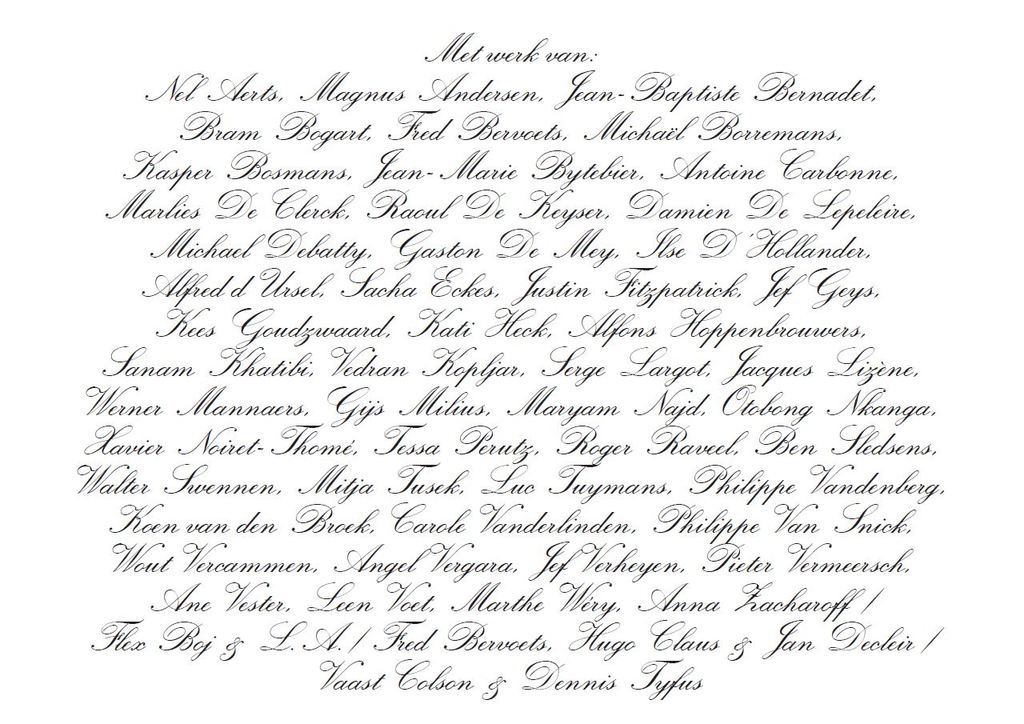 Met werk van:
Nel Aerts, Magnus Andersen, Jean-Baptiste Bernadet,
Bram Bogart, Fred Bervoets, Michaël Borremans,
Kasper Bosmans, Jean-Marie Bytebier, Antoine Carbonne,
Marlies De Clerck, Raoul De Keyser, Damien De Lepeleire,
Michael Debatty, Gaston De Mey, Ilse D'Hollander,
Alfred d Ursel, Sacha Eckes, Justin Fitzpatrick, Jef Geys,
Kees Goudzwaard, Kati Heck, Alfons Hoppenbrouwers,
Sanam Khatibi, Vedran Kopljar, Serge Largot, Jacques Lizène,
Werner Mannaers, Gijs Milius, Maryam Najd, Otobong Nkanga,
Xavier Noiret-Thomé, Tessa Perutz, Roger Raveel, Ben Sledsens,
Walter Swennen, Mitja Tusek, Luc Tuymans, Philippe Vandenberg,
Koen van den Broek, Carole Vanderlinden, Philippe Van Snick,
Wout Vercammen, Angel Vergara, Jef Verheyen, Pieter Vermeersch,
Ane Vester, Leen Voet, Marthe Wéry, Anna Zacharoff /
Flex Boj & L.A. / Fred Bervoets, Hugo Claus & Jan Decleir /
Vaast Colson & Dennis Tyfus